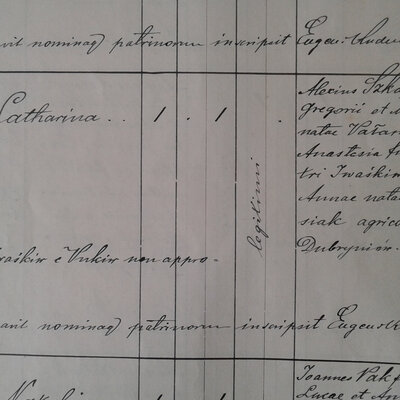 avit nominaq patrinorum inscripsit Eugen
Catharina . . 1 . 1 .
Alexius Szka
Gregorii et
natae Vařar
Anastasia
tri Iwaśkin
Annae nata
siak agric
Dubryniów.
legitimi
waśkiw e Vnkiw non appro-
avit nominaq patrinorum inscripsit Eugen
Joannes Pak f
Lucae et An